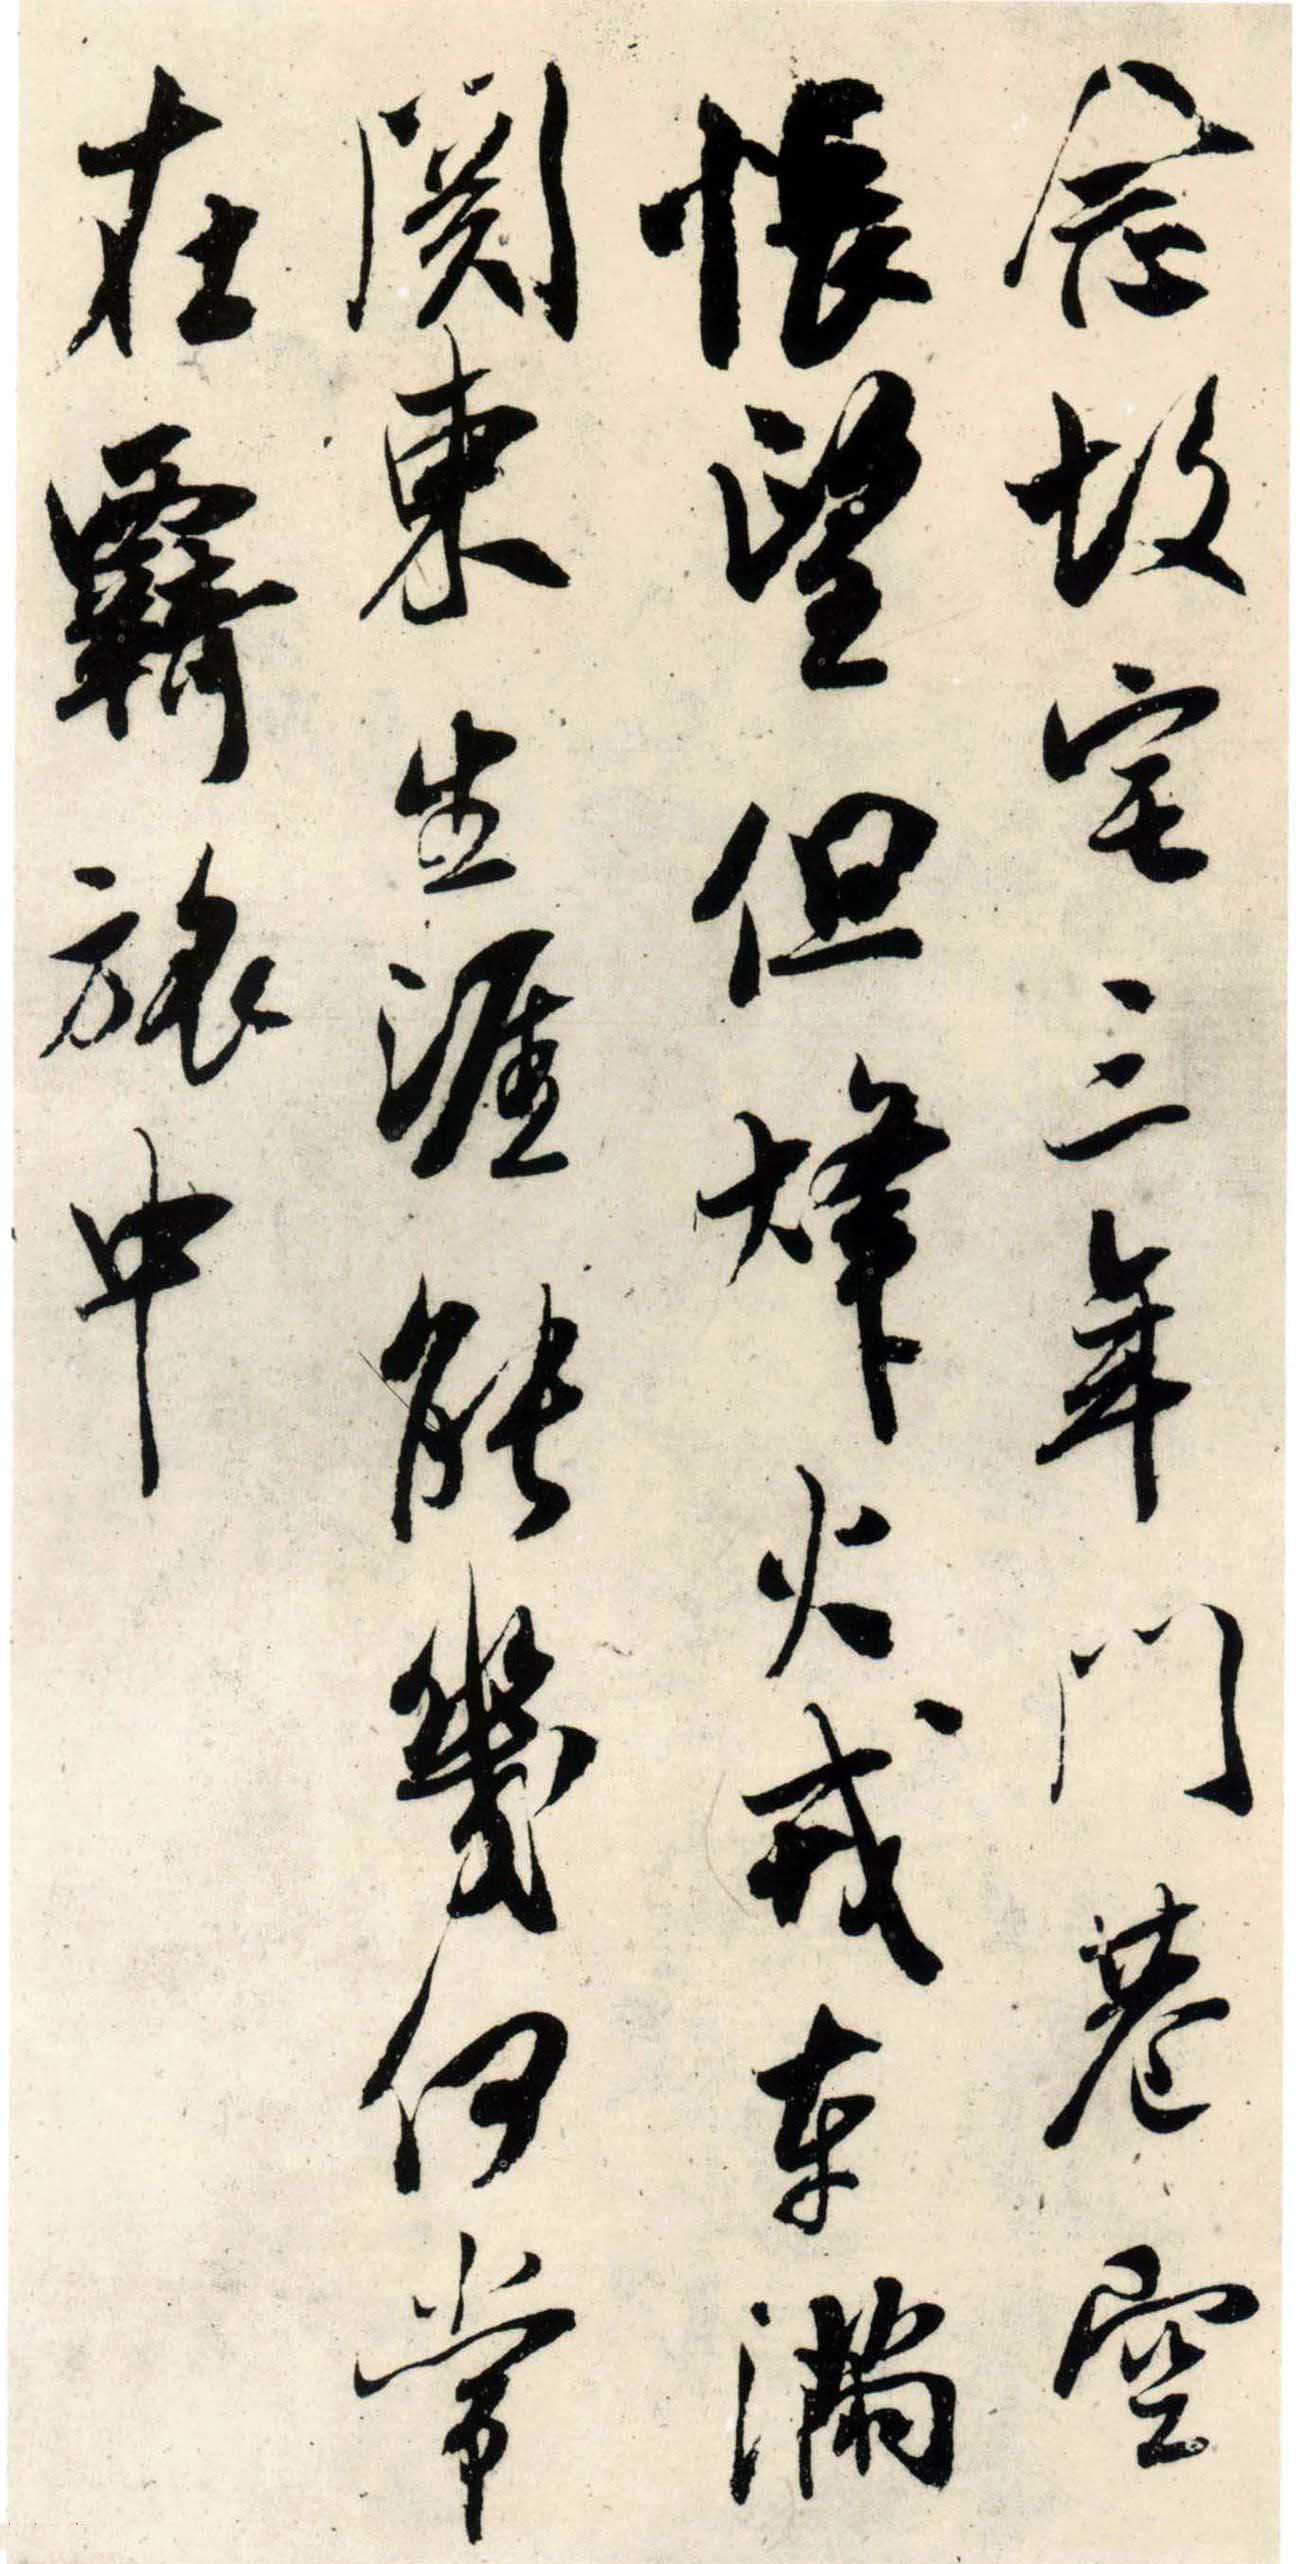 谷故宅三年門巷空
悵望但烽火戎車滿
関東生涯能幾何常
在羇旅中